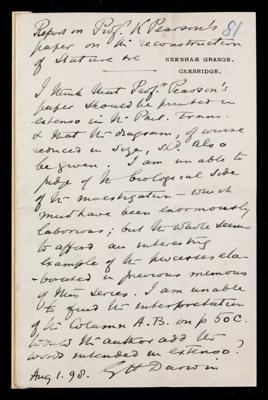 Report on Prof. K Pearson's
81
paper on the reconstruction
of Stature &c
NEWNHAM GRANGE,
CAMBRIDGE.
I think that Profr. Pearson's
paper should be printed in
extenso in the Phil. Trans.
& that the diagram, of course
reduced in size, shd. also
be given. I am unable to
judge of the biological side
of the investigation – which
must have been enormously
laborious; but the whole seems
to afford an interesting
example of the processes ela-
-borated in previous memoirs
of this series. I am unable
to find the interpretation
of the Column A.B. on p 50c.
Would the author add the
words intended in extenso?
Aug 1. 98. G H Darwin